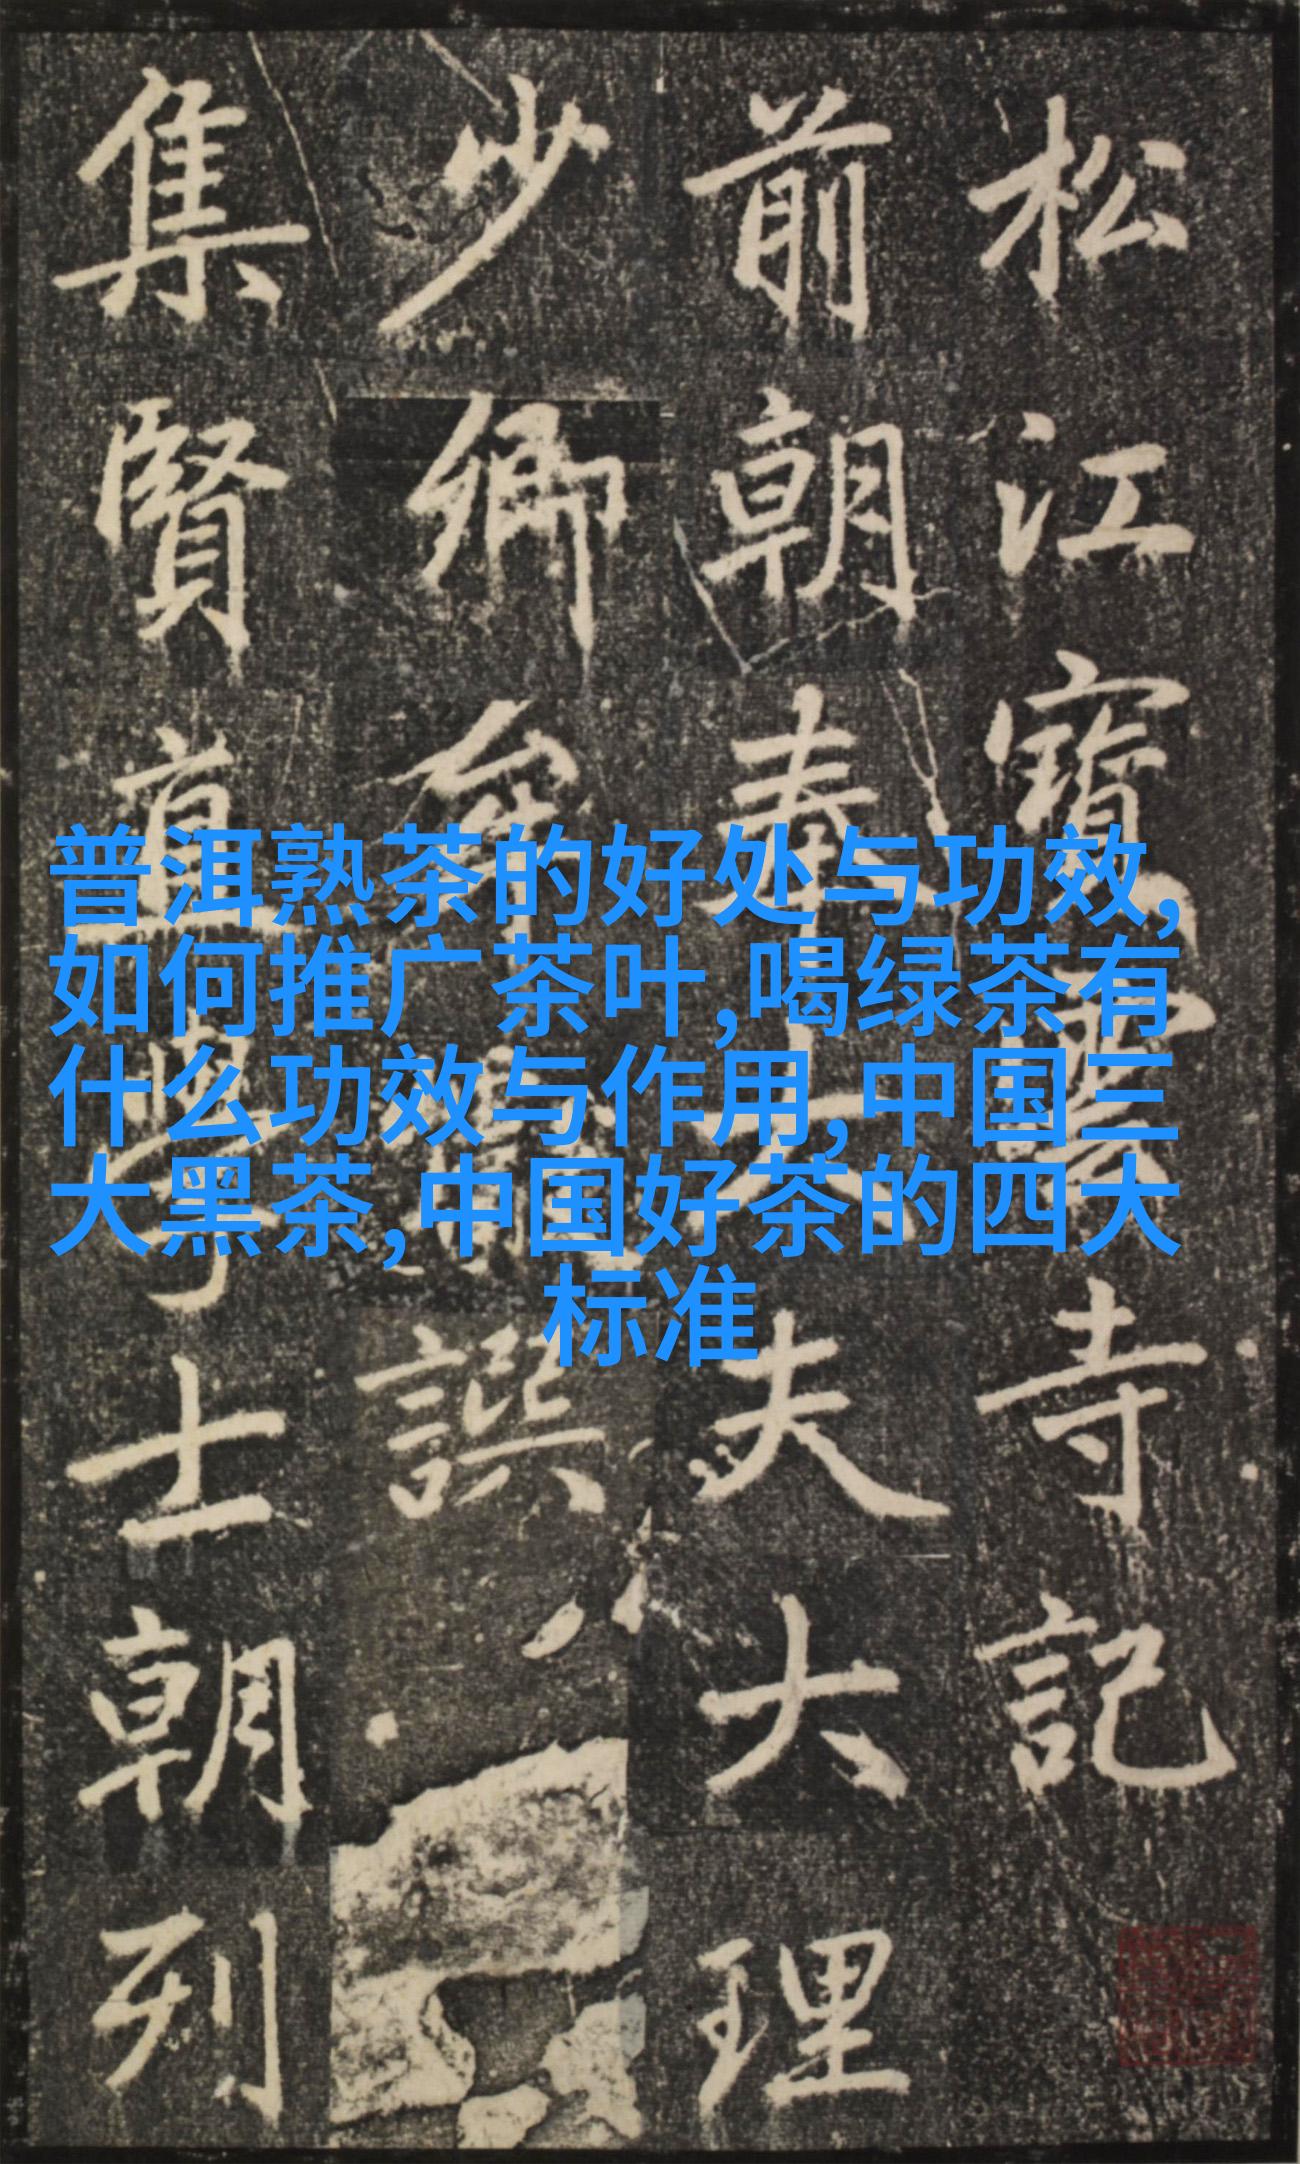 松江寳雲寺記
前朝奉大夫大理
少卿牟譔
集賢直學士朝列
普洱熟茶的好处与功效,
如何推广茶叶,喝绿茶有
什么功效与作用,中国三
大黑茶,中国好茶的四大
标准